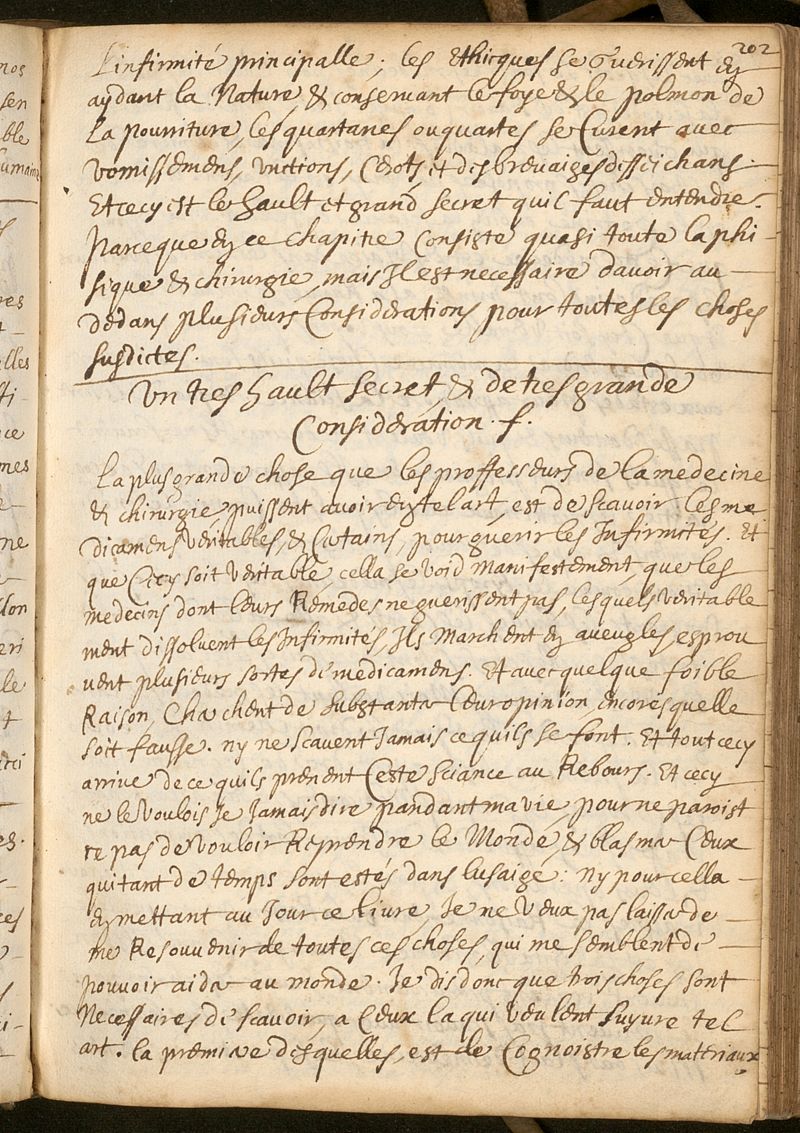 202
L'infirmité principalle; les Ethicques se Guerissent en
aydant la Nature, & conservant le foye & le polmon de
la pourriture, les quartanes ou quartes se Curent avec
vomissemens, unctions, Cerots et des brevaiges desseichans.
Et cecy est le hault et grand secret quil faut entendre.
Parceque en ce chapitre Consiste quasi toute la phi-
sique & chirurgie, mais Il est necessaire davoir au
dedans plusieurs Considerations, pour toutes les choses
susdictes.
Un tres hault secret, & de tres grande
Consideration. f.
La plus grande chose que les proffesseurs de la medecine
& chirurgie, puissent avoir en tel art, est de scavoir les me
dicamens veritables, & Certains, pour guerir les Infirmités. Et
que Cecy soit veritable, cella se void manifestement, que les
medecins dont leurs Remedes ne guerissent pas, lesquels veritable
ment dissolvent les Infirmités, Ils marchent en aveugles esprou
vent plusieurs sortes de medicamens. Et avec quelque foible
Raison, Cherchent de substanter leur opinion, encores quelle
soit fausse. ny ne scavent Jamais ce quils se font. Et tout cecy
arrive de ce quils prenent Ceste sciance au Rebours. Et cecy
ne le voulois Je Jamais dire pandant ma vie, pour ne paroist
re pas de vouloir Reprendre le Monde, & blasmer Ceux
qui tant de temps sont estés dans lusaige: ny pour cella
en mettant au Jour ce livre, Je ne veux pas laisser de
me Resouvenir de toutes ces choses, qui me semblent de
pouvoir aider au monde. Je dis donc que trois choses sont
Necessaires de scavoir, a Ceux la qui veulent suyvre tel
art. la premiere desquelles, est de Cognoistre les materiaux